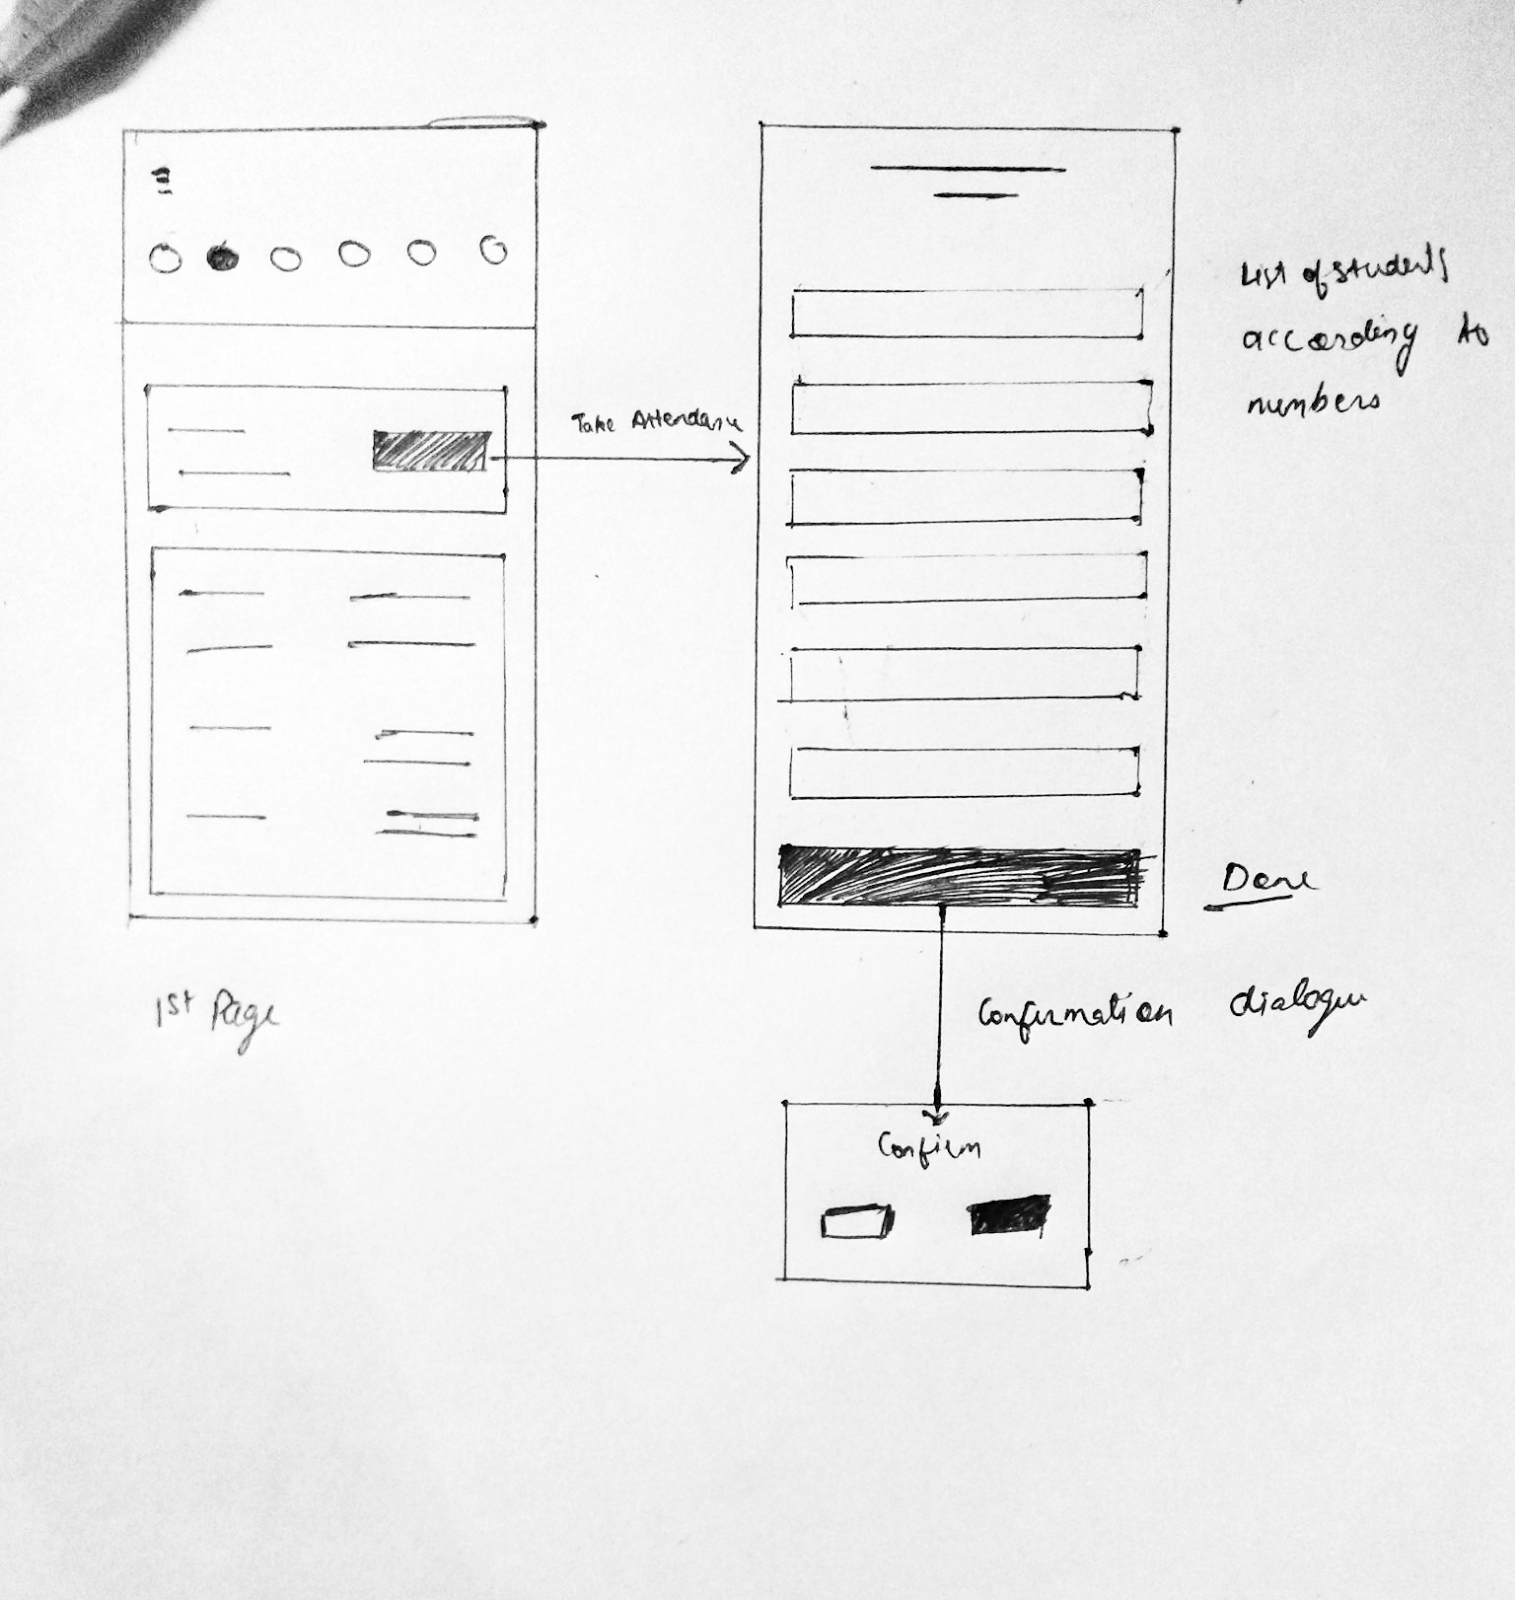 Take Attendance
List of students
according to
numbers
Done
1st Page
Confirmation dialogue
Confirm